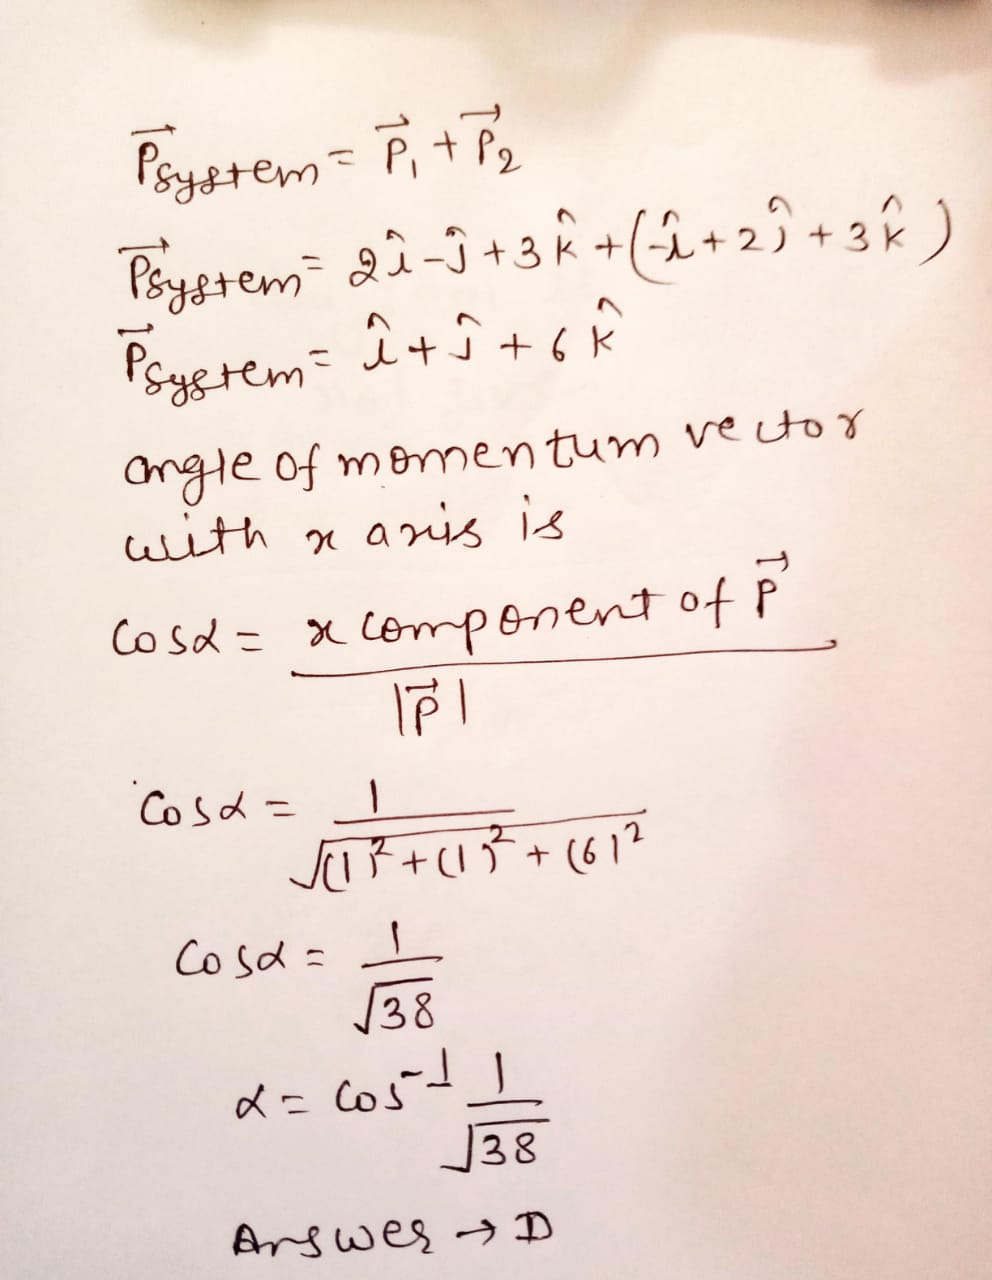 P⃗system = P⃗₁ + P⃗₂
P⃗system = 2î - ĵ + 3k̂ + (-î + 2ĵ + 3k̂)
P⃗system = î + ĵ + 6k̂
angle of momentum vector
with x axis is
Cosα = x component of P⃗
|P⃗|
Cosα = 1
√(1)² + (1)² + (6)²
Cosα = 1
√38
α = Cos⁻¹ 1
√38
Answer → D